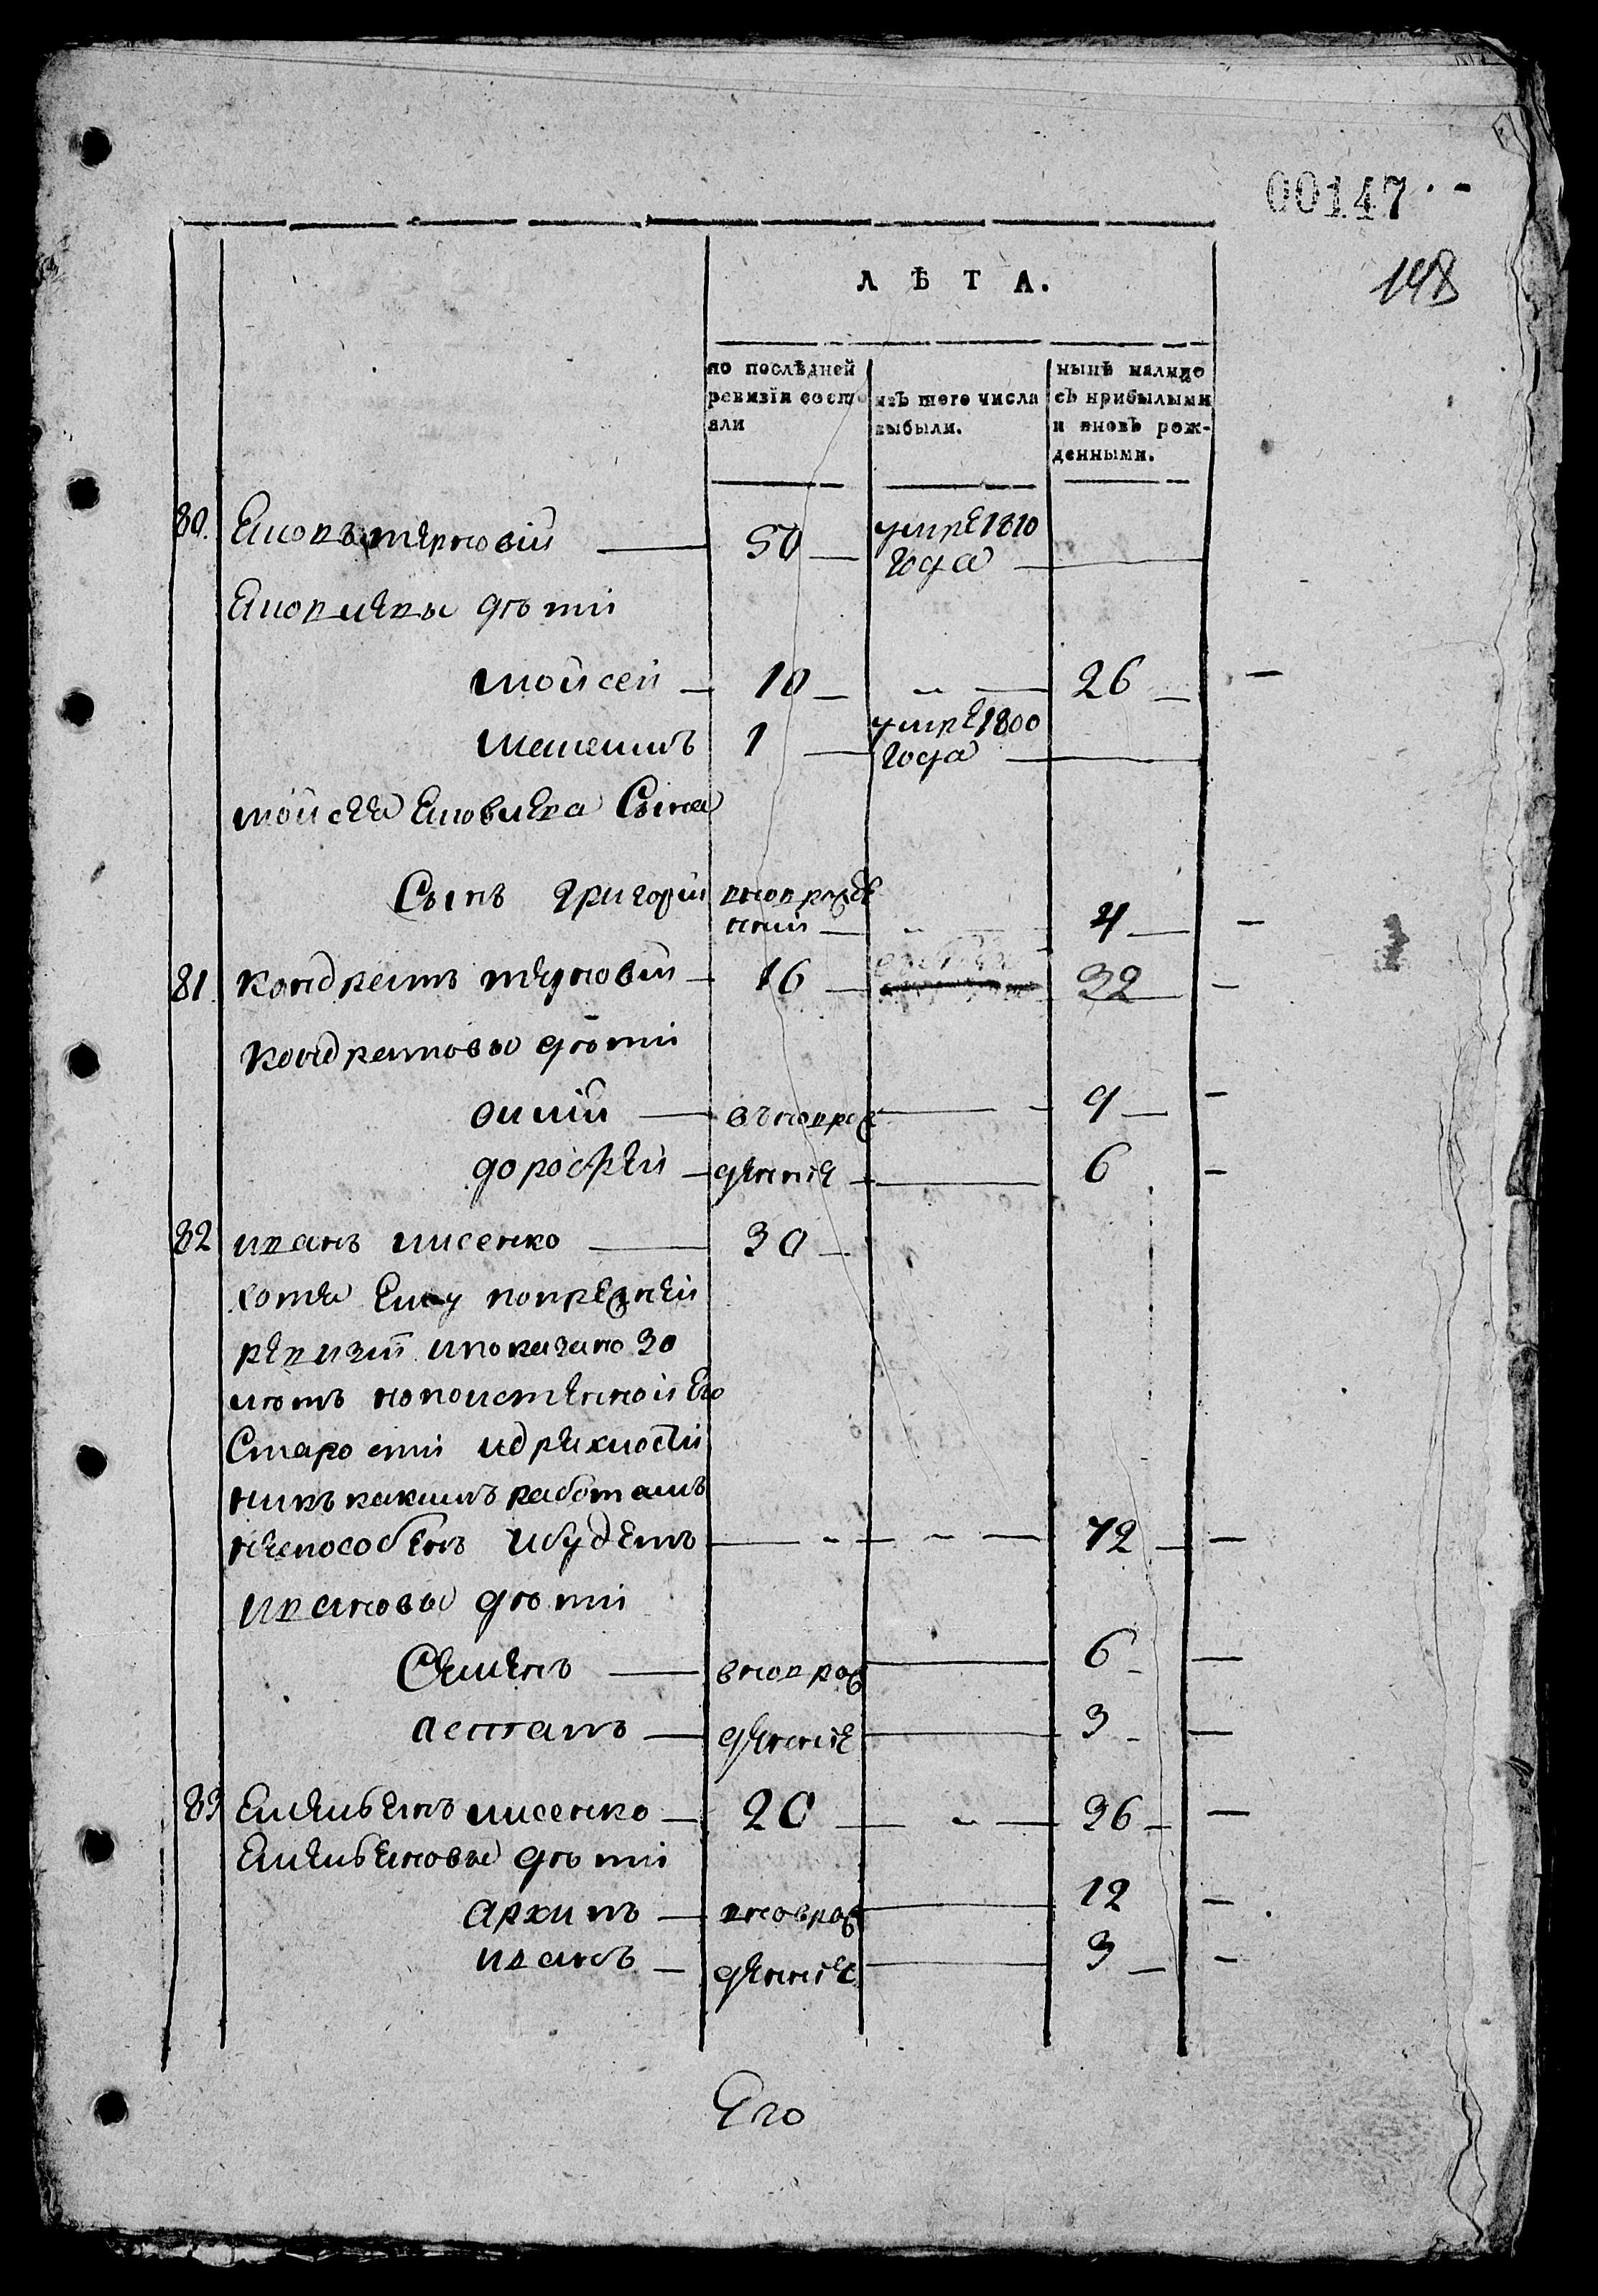 00147
148
ЛѢТА.
по послѣдней ревизіи состояли
изъ того числа выбыли.
нынѣ налицо съ прибылыми и вновь рожденными.
80. Яковъ терновій 50 умре 1810
года
Яковлевы дѣти
Мойсей 10 26
1 умре 1800
года
Мойсея Яковлева Сына
Сынъ Григорій вновърожде
нний 4
81 Кондратъ терновій 16 32
Кондратовы дѣти
въноврож 9
дорофей деннiе 6
82 иванъ лисенко 30
хотя Ему попрежней
ревизіи ипоказано 30
лѣтъ нопоистеннойЕго
Старости идряхлости
никъкакимъ работамъ
неспособенъ ибудетъ 72
ивановы дѣти
Семенъ вноврож 6
денніе 3
83 Емельянъ лисенко 20 36
Емельяновы дѣти
архипъ вноврож 12
иванъ денніе 3
Его